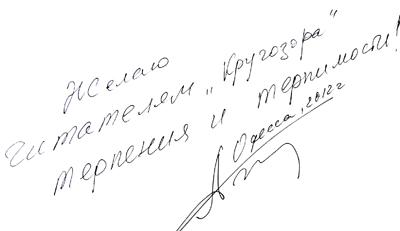 Желаю
читателям „Кругозора"
терпения и терпимости!
Одесса, 2012 г